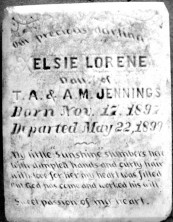 our precious darling
ELSIE LORENE
Dau. of
T. A. & A. M. JENNINGS
Born Nov. 17. 1897
Departed May 22, 1899
My little "sunshine" slumbers here
With dimpled hands and curly hair
With love for her my heart was filled
But God has come and worked his will
passion of my heart.